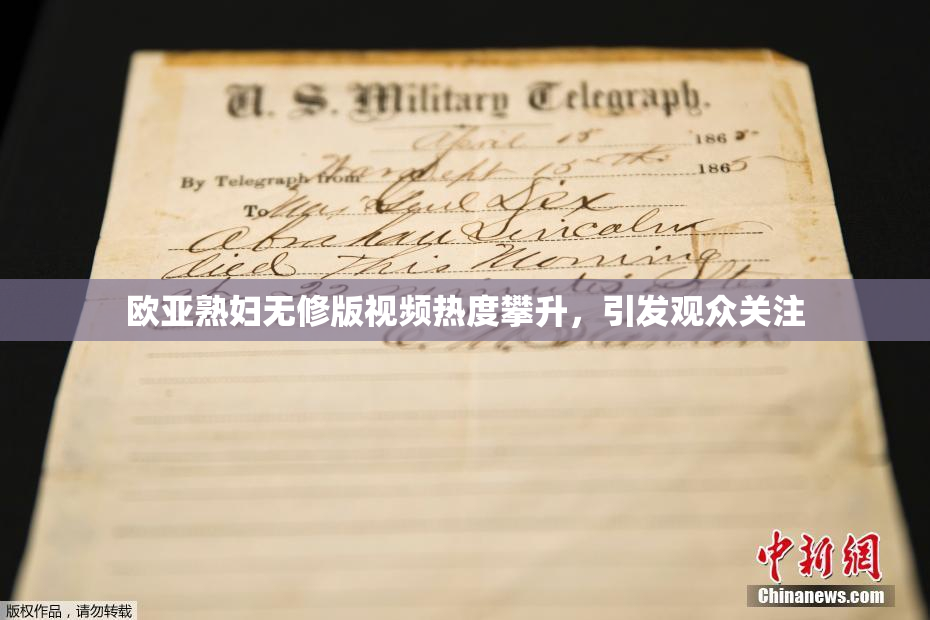 U. S. Military Telegraph.
April 15 1865
By Telegraph from War Dept 15th 1865
To Maj Genl Dix
Abraham Lincoln
died This Morning
at 22 minutes after
欧亚熟妇无修版视频热度攀升，引发观众关注
E. M. Stanton
中新網
Chinanews.com
版权作品，请勿转载